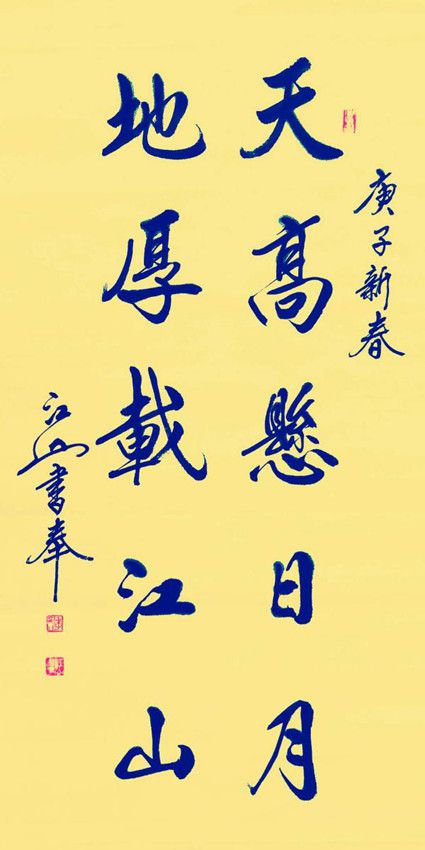 庚子新春
天高懸日月
地厚載江山
江山書奉